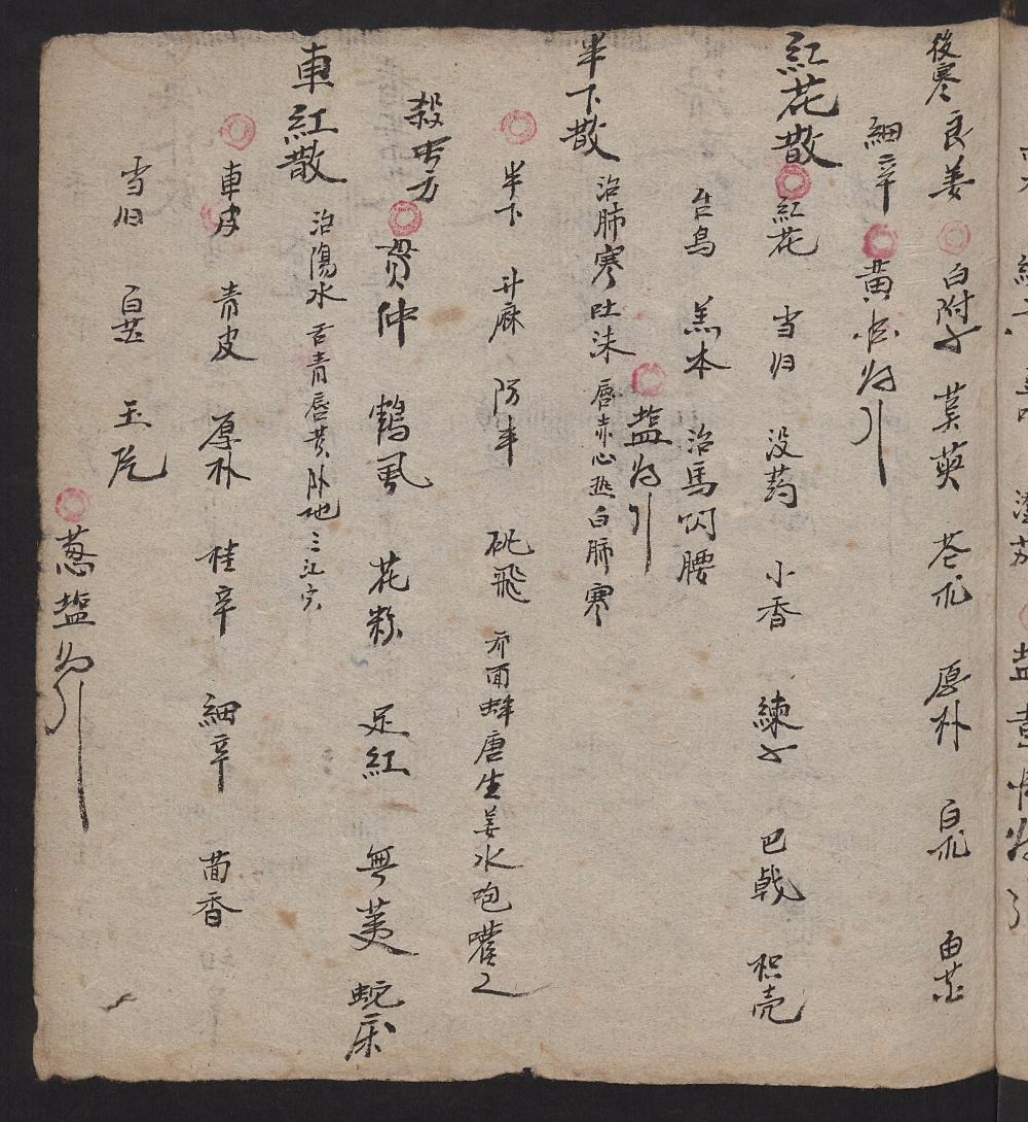 後寒 良姜 白附子 茱萸 苍朮 厚朴 白朮 白芷
細辛 黄酒为引
紅花散 紅花 当归 没药 小香 練子 巴戟 枳壳
台乌 羔本 治馬闪腰
塩为引
半下散 治肺寒吐沫 唇赤心热白肺寒
半下 升麻 防丰 矾飛 荞面蜂唐生姜水咆嚾之
殺虫方 贯仲 鶴虱 花粉 足紅 無荑 蛇床
車紅散 治傷水 舌青唇黄卧地 三江穴
車皮 青皮 厚朴 桂辛 細辛 茴香
当归 白芷 玉片
葱塩为引